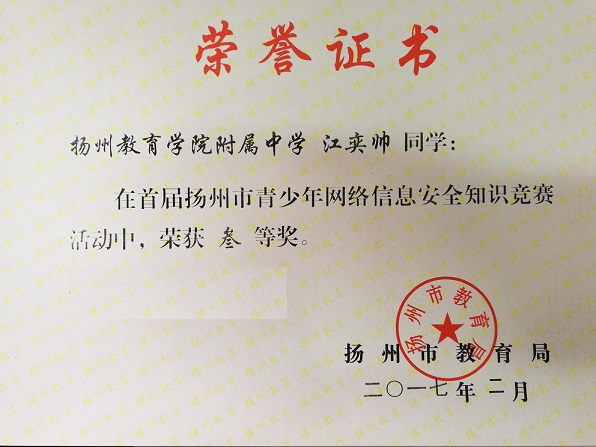 荣誉证书
扬州教育学院附属中学 江奕帅 同学：
在首届扬州市青少年网络信息安全知识竞赛
活动中，荣获 叁 等奖。
扬州市教育局
扬州市教育局
二〇一七年二月